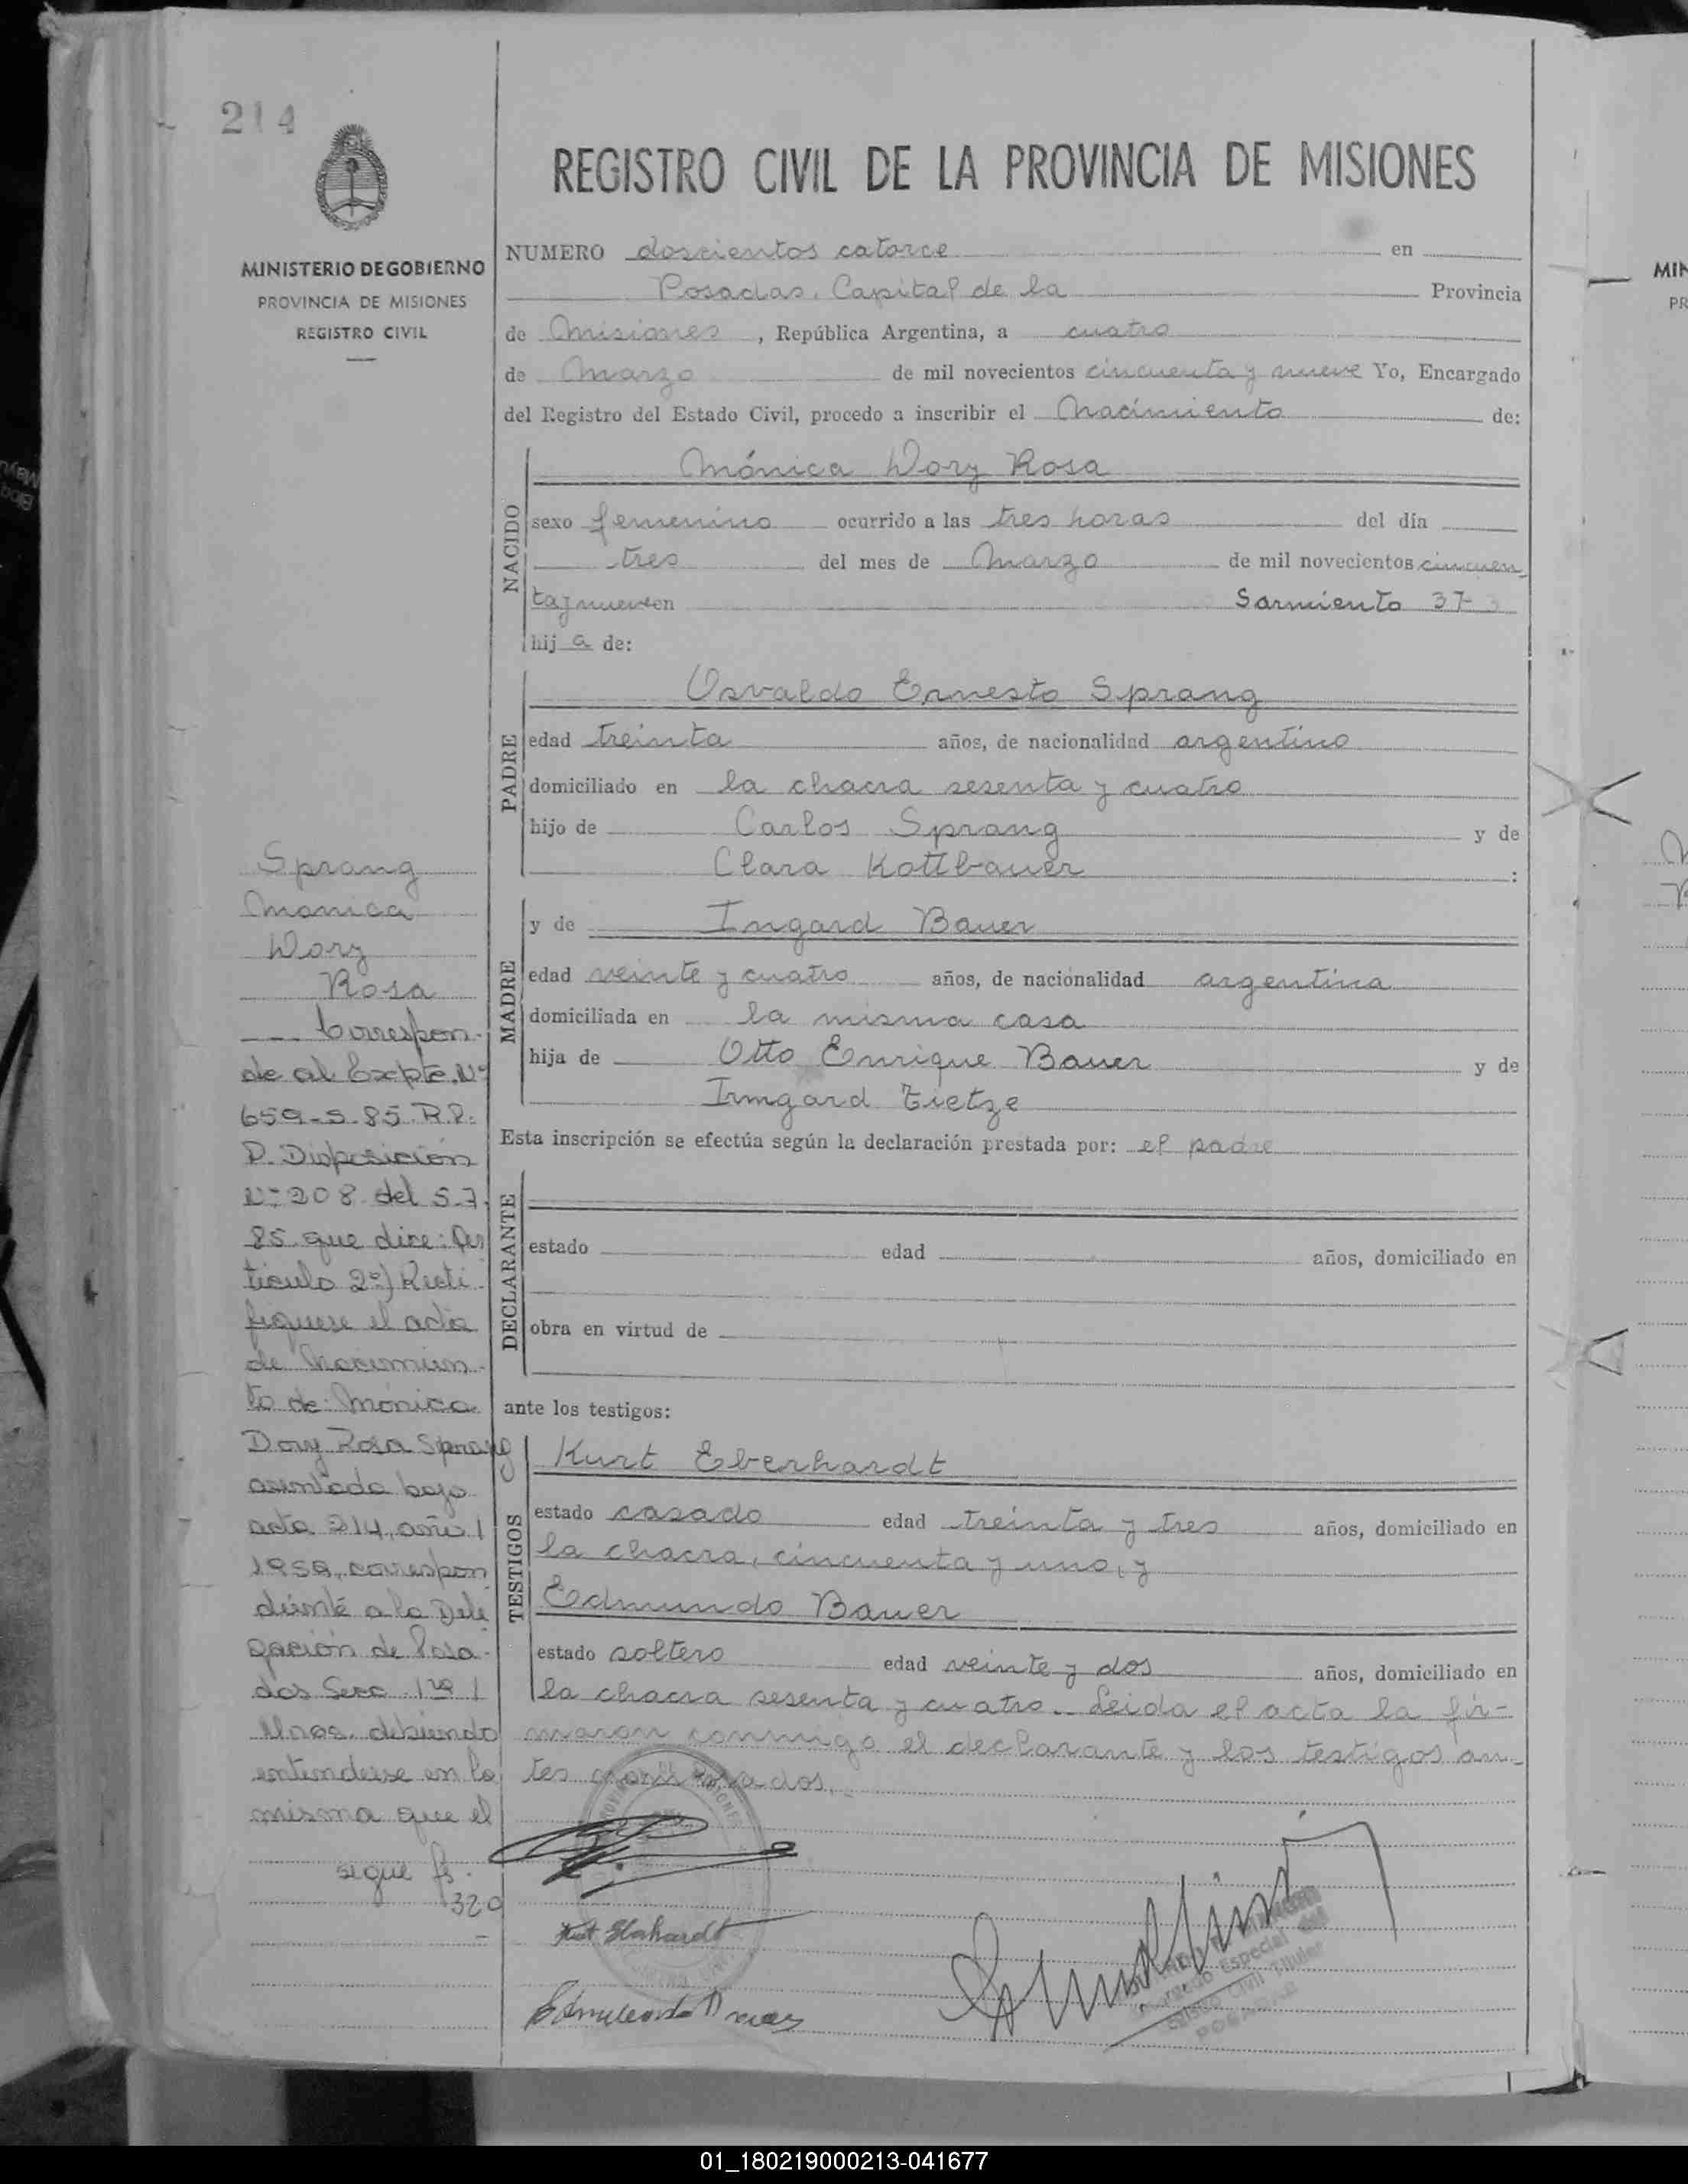 214
MINISTERIO DE GOBIERNO
PROVINCIA DE MISIONES
REGISTRO CIVIL
REGISTRO CIVIL DE LA PROVINCIA DE MISIONES
NUMERO doscientos catorce en
Posadas, Capital de la Provincia
de Misiones, República Argentina, a cuatro
de Marzo de mil novecientos cincuenta y nueve Yo, Encargado
del Registro del Estado Civil, procedo a inscribir el Nacimiento de:
NACIDO
Mónica Dory Rosa
sexo femenino ocurrido a las tres horas del día
tres del mes de Marzo de mil novecientos cincuen
ta y nueve en Sarmiento 37
hij a de:
PADRE
Osvaldo Ernesto Sprang
edad treinta años, de nacionalidad argentino
domiciliado en la chacra sesenta y cuatro
hijo de Carlos Sprang y de
Clara Kottbauer :
MADRE
y de Ingard Bauer
edad veinte y cuatro años, de nacionalidad argentina
domiciliada en la misma casa
hija de Otto Enrique Bauer y de
Irmgard Tietze
Esta inscripción se efectúa según la declaración prestada por: el padre
DECLARANTE
estado edad años, domiciliado en
obra en virtud de
ante los testigos:
TESTIGOS
Kurt Eberhardt
estado casado edad treinta y tres años, domiciliado en
la chacra, cincuenta y uno, y
Edmundo Bauer
estado soltero edad veinte y dos años, domiciliado en
la chacra sesenta y cuatro. Leida el acta la fir-
maron conmigo el declarante y los testigos an-
tes nombrados.
Sprang
Monica
Dory
Rosa
Correspon-
de al Expte. Nº
659-S-85. R.P.
P. Disposición
Nº 208 del 5.7.
85 que dice: Ar
ticulo 2º) Recti
fiquese el acta
de Nacimien-
to de: Mónica
Dory Rosa Sprang
asentada bajo
acta 214, año
1959, correspon
diente a la Dele
gación de Posa-
das Secc 1ra
Mnes. debiendo
entenderse en la
misma que el
sigue fs.
320
Kurt Eberhardt
Edmundo Bauer
Encargado Especial del
Registro Civil Titular
POSADAS
MIN
PR
01_180219000213-041677